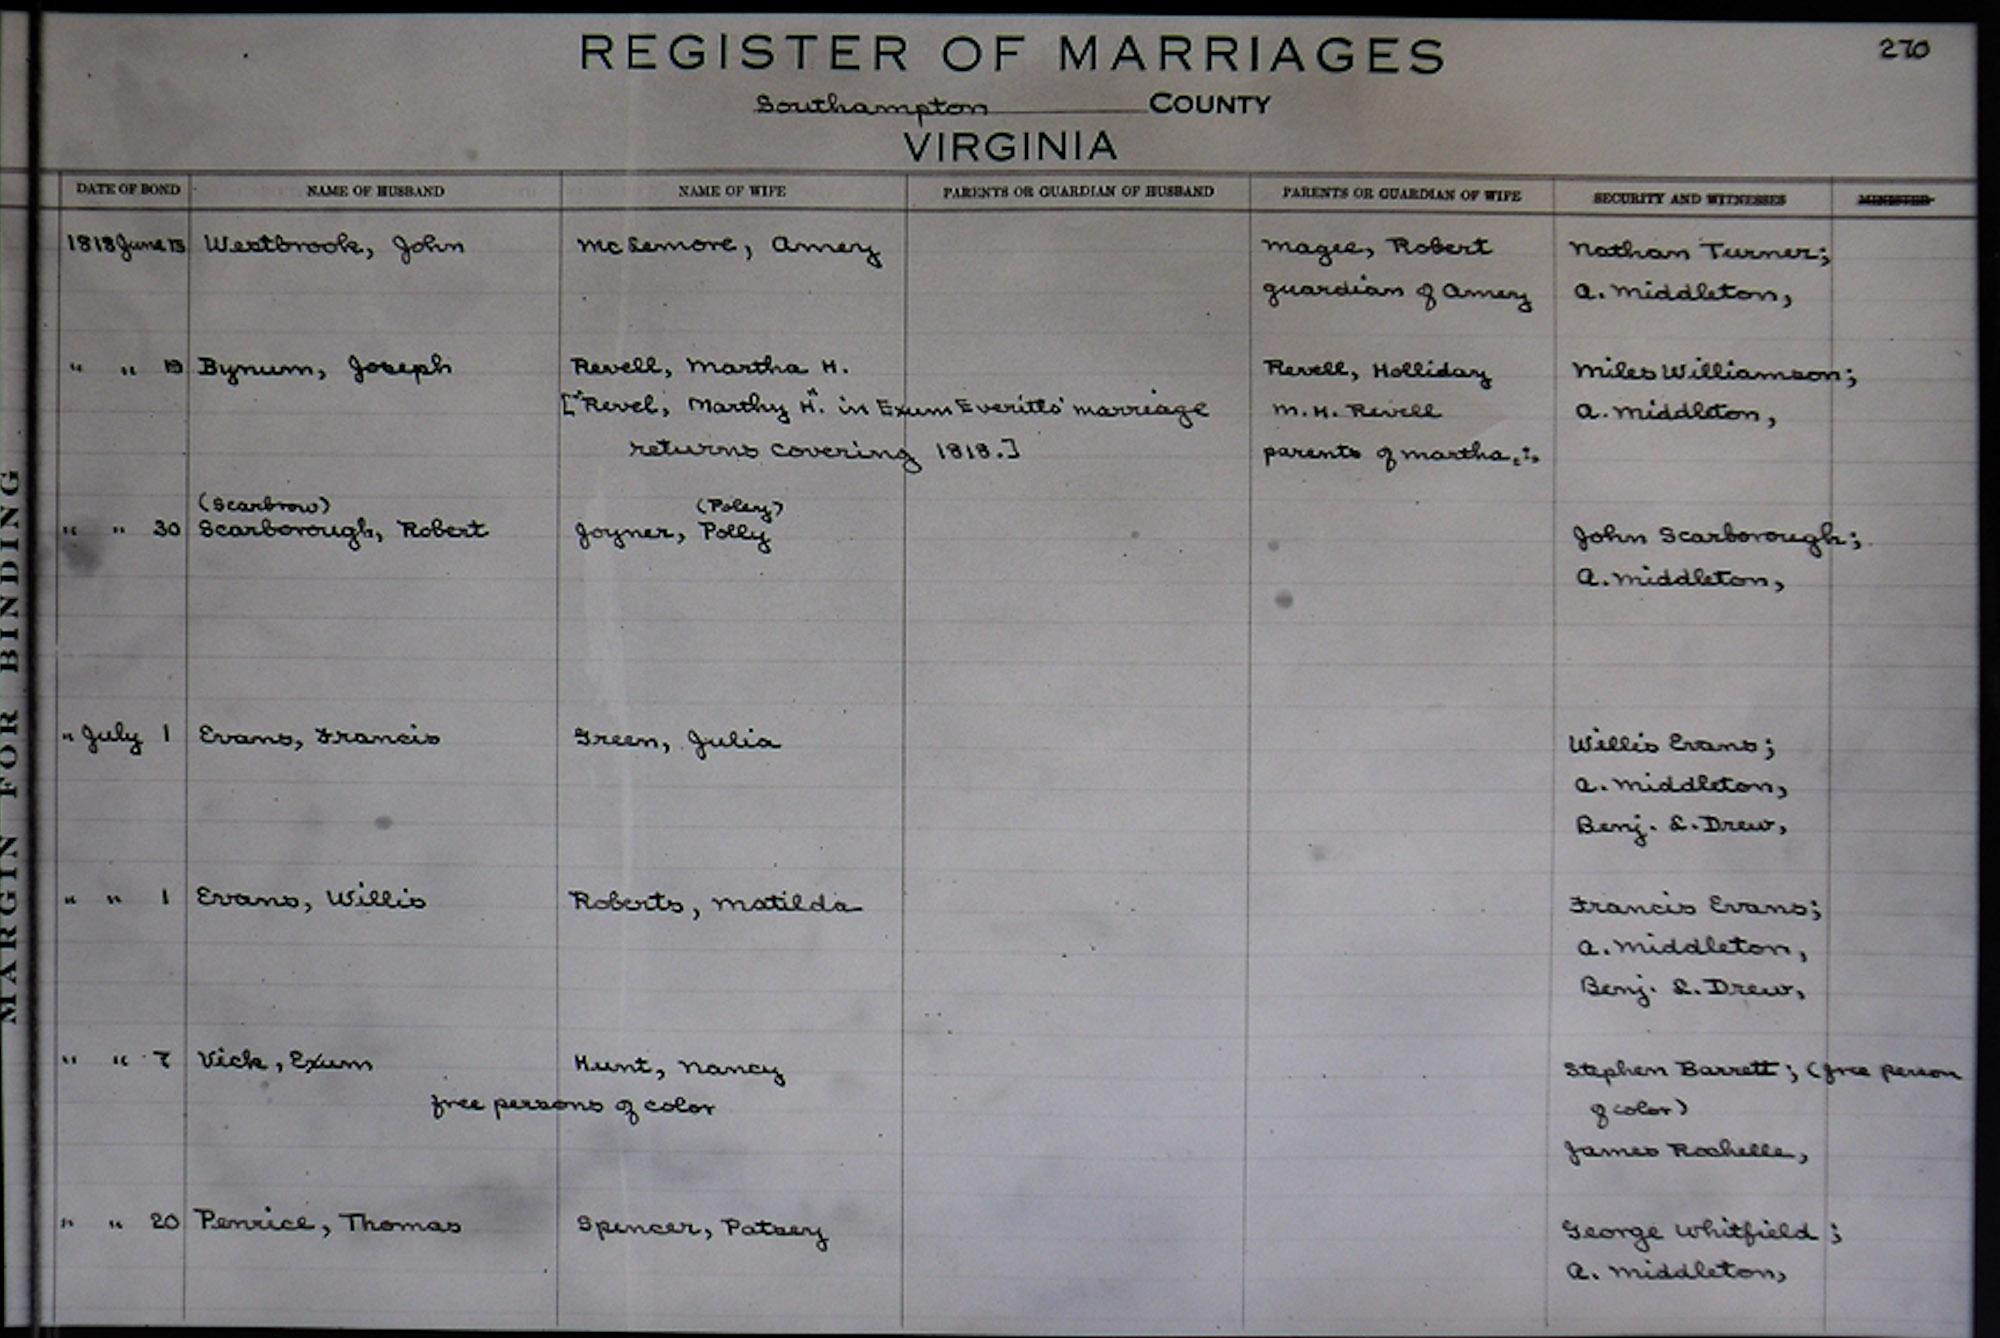 REGISTER OF MARRIAGES
270
Southampton COUNTY
VIRGINIA
MARGIN FOR BINDING
DATE OF BOND NAME OF HUSBAND NAME OF WIFE PARENTS OR GUARDIAN OF HUSBAND PARENTS OR GUARDIAN OF WIFE SECURITY AND WITNESSES MINISTER
1818 June 15 Westbrook, John McLemore, Amey Magee, Robert Nathan Turner;
guardian of Amey A. Middleton,
" " 19 Bynum, Joseph Revell, Martha H. Revell, Holliday Miles Williamson;
["Revel, Marthy H". in Exum Everitts' marriage M. H. Revell A. Middleton,
returns covering 1818.] parents of Martha,
(Scarbrow) (Poley)
" " 30 Scarborough, Robert Joyner, Polly John Scarborough;
A. Middleton,
" July 1 Evans, Francis Green, Julia Willis Evans;
A. Middleton,
Benj. L. Drew,
" " 1 Evans, Willis Roberts, Matilda Francis Evans;
A. Middleton,
Benj. L. Drew,
" " 7 Vick, Exum Hunt, Nancy Stephen Barrett; (free person
free persons of color of color)
James Rochelle,
" " 20 Penrice, Thomas Spencer, Patsey George Whitfield;
A. Middleton,